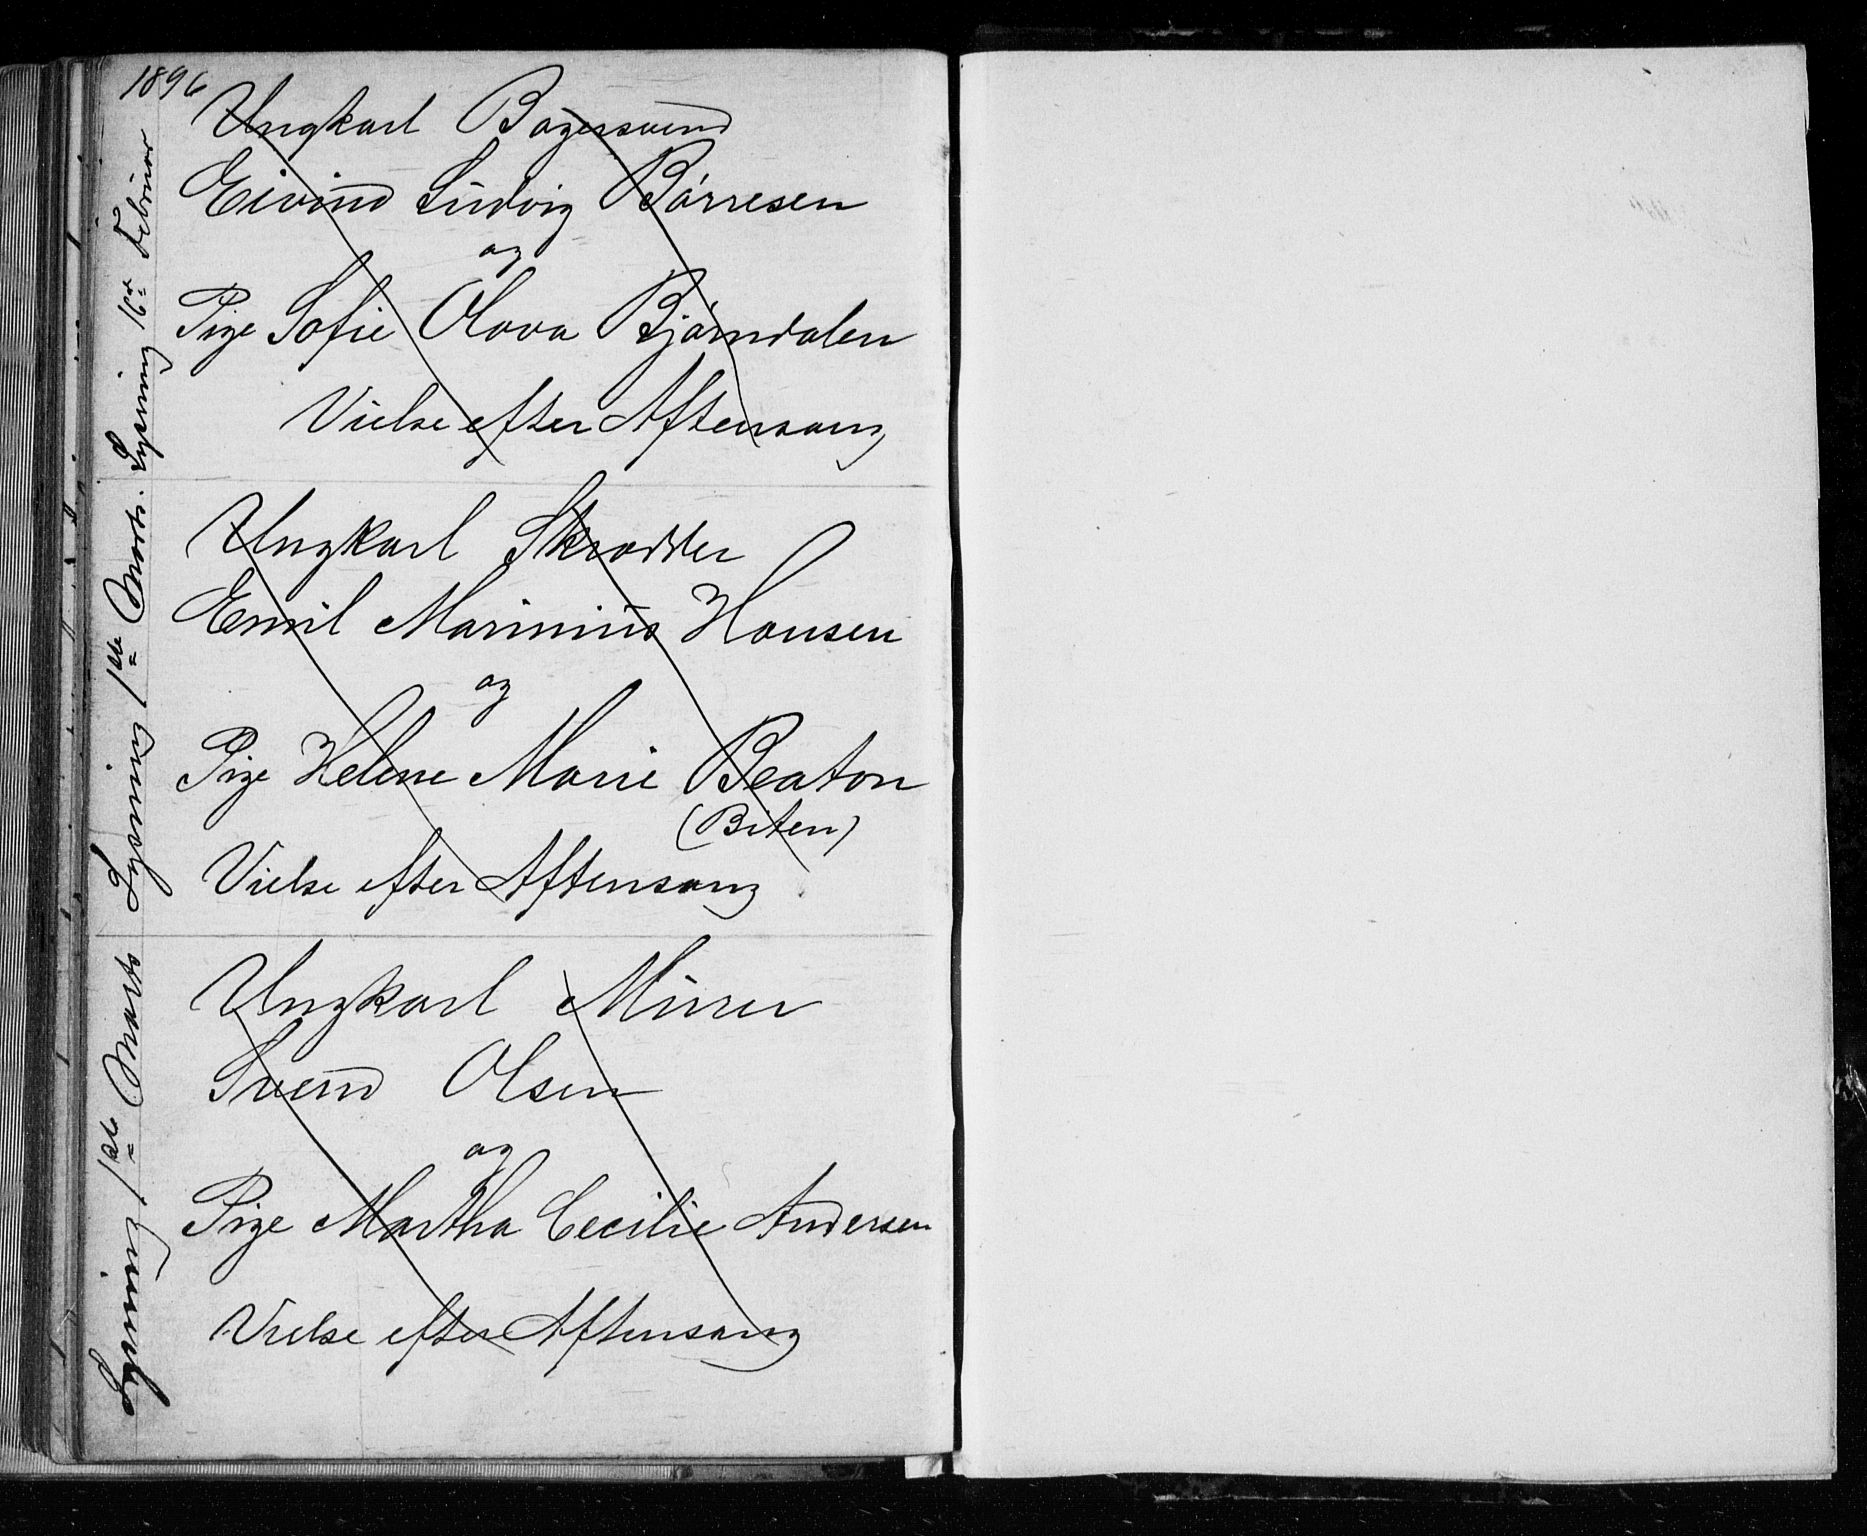 1896
Lysning 16de Februar
Ungkarl Bagersvend
Eivind Ludvig Børresen
og
Pige Sofie Olava Bjørndalen
Vielse efter Aftensang
Lysning 1ste Marts.
Ungkarl Skrædder
Emil Marinius Hansen
og
Pige Helene Marie Beaton
(Biten)
Vielse efter Aftensang
Lysning 1ste Marts
Ungkarl Murer
Svend Olsen
og
Pige Martha Cecilie Andersen
Vielse efter Aftensang